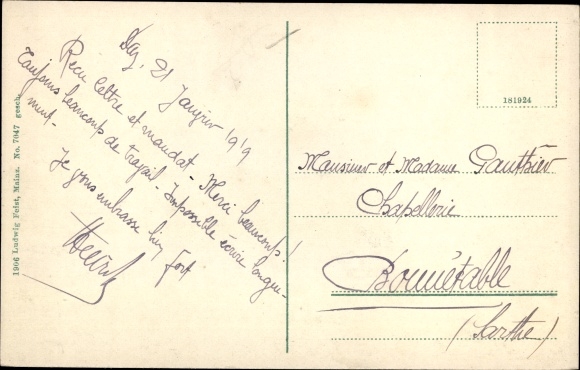 21 Janvier 1919
Reçu lettre et mandat - Merci beaucoup!
Toujours beaucoup de travail - Impossible écrire longue-
ment -
Je vous embrasse bien fort
1906 Ludwig Feist, Mainz. No. 7047 gesch.
181924
Monsieur et Madame Gauthier
Chapellerie
Bonnétable
(Sarthe)